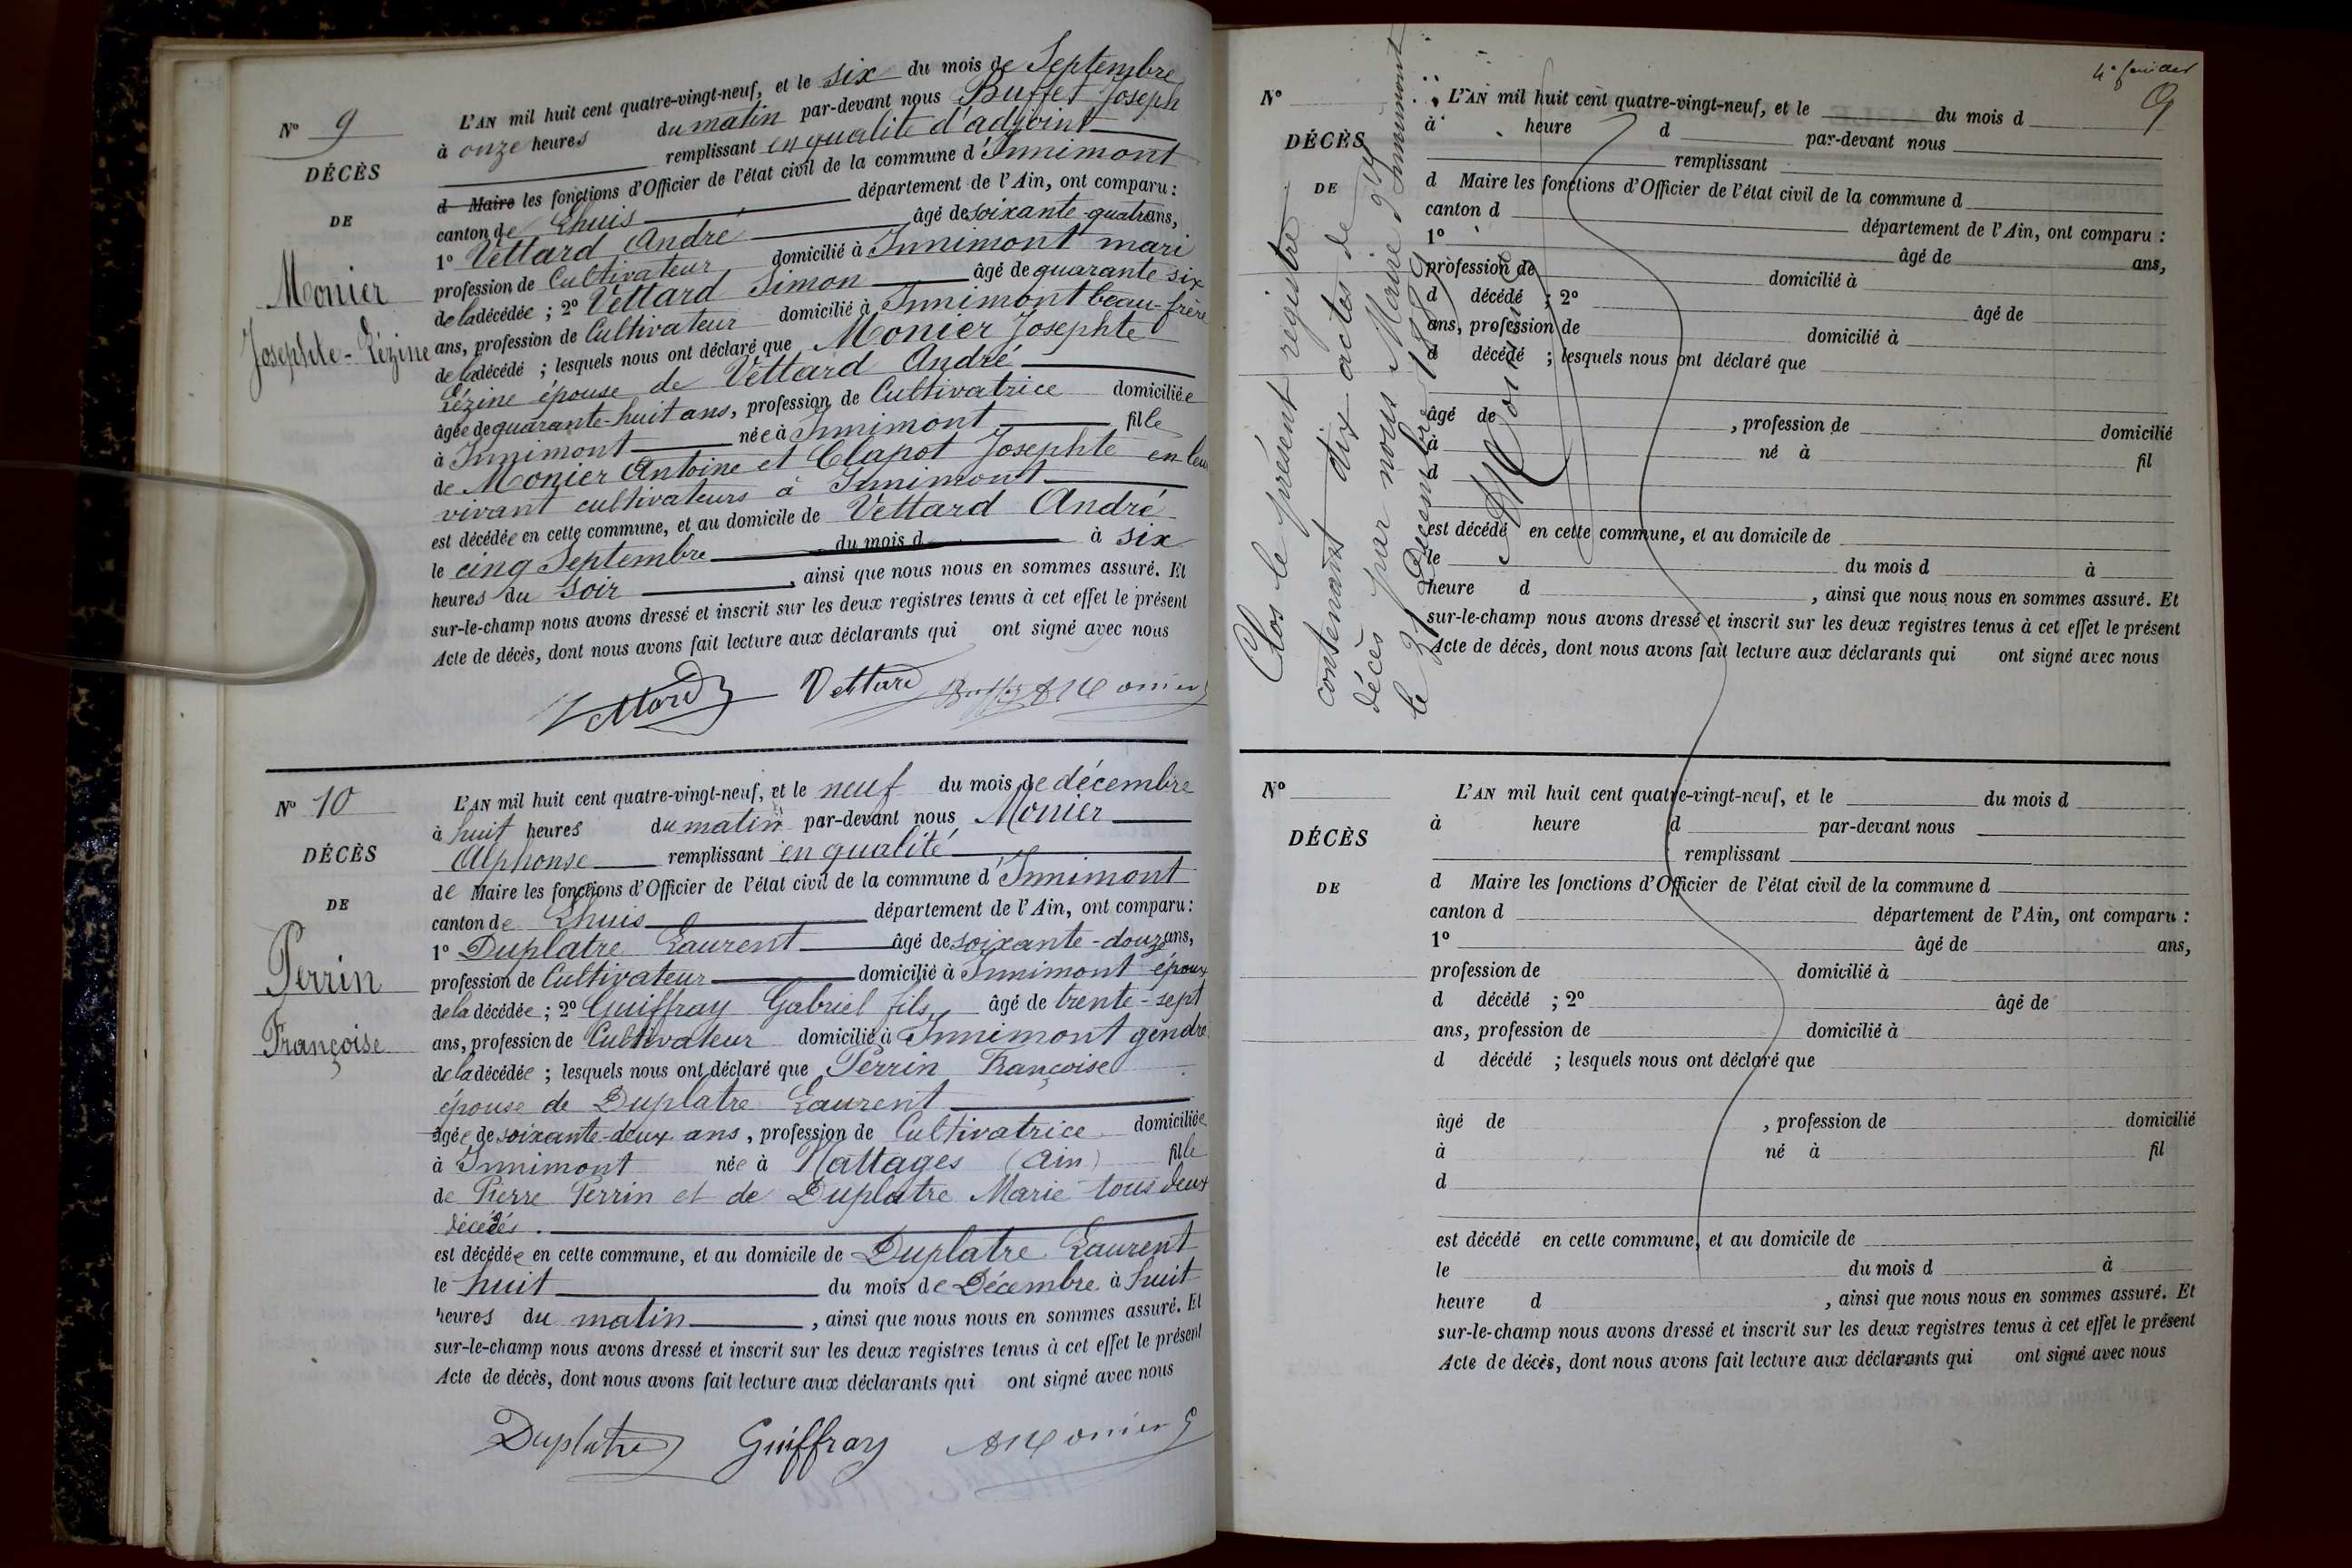 N° 9
DÉCÈS
DE
Monier
Josephte-Lézine
L'AN mil huit cent quatre-vingt-neuf, et le six du mois de Septembre
à onze heures du matin par-devant nous Buffet Joseph
remplissant en qualité d'adjoint
d Maire les fonctions d'Officier de l'état civil de la commune d'Innimont
canton de Lhuis département de l'Ain, ont comparu :
1° Vettard André âgé de soixante-quatre ans,
profession de Cultivateur domicilié à Innimont mari
de la décédée ; 2° Vettard Simon âgé de quarante six
ans, profession de Cultivateur domicilié à Innimont beau-frère
de la décédé ; lesquels nous ont déclaré que Monier Josephte
Lézine épouse de Vettard André
âgée de quarante-huit ans, profession de Cultivatrice domiciliée
à Innimont née à Innimont fille
de Monier Antoine et Clapot Josephte en leur
vivant cultivateurs à Innimont
est décédée en cette commune, et au domicile de Vettard André
le cinq Septembre du mois d à six
heures du soir , ainsi que nous nous en sommes assuré. Et
sur-le-champ nous avons dressé et inscrit sur les deux registres tenus à cet effet le présent
Acte de décès, dont nous avons fait lecture aux déclarants qui ont signé avec nous
Vettard Vettard Buffet AMonier
N° 10
DÉCÈS
DE
Perrin
Françoise
L'AN mil huit cent quatre-vingt-neuf, et le neuf du mois de décembre
à huit heures du matin par-devant nous Monier
Alphonse remplissant en qualité
de Maire les fonctions d'Officier de l'état civil de la commune d'Innimont
canton de Lhuis département de l'Ain, ont comparu :
1° Duplatre Laurent âgé de soixante-douze ans,
profession de Cultivateur domicilié à Innimont époux
de la décédée ; 2° Guiffray Gabriel fils, âgé de trente-sept
ans, profession de Cultivateur domicilié à Innimont gendre
de la décédée ; lesquels nous ont déclaré que Perrin Françoise
épouse de Duplatre Laurent
âgée de soixante-deux ans, profession de Cultivatrice domiciliée
à Innimont née à Nattages (Ain) fille
de Pierre Perrin et de Duplatre Marie tous deux
décédés.
est décédée en cette commune, et au domicile de Duplatre Laurent
le huit du mois de Décembre à huit
heures du matin , ainsi que nous nous en sommes assuré. Et
sur-le-champ nous avons dressé et inscrit sur les deux registres tenus à cet effet le présent
Acte de décès, dont nous avons fait lecture aux déclarants qui ont signé avec nous
Duplatre Guiffray AMonier
4e feuillet
9
Clos le présent registre
contenant dix actes de
décès par nous Maire d'Innimont
le 31 Décembre 1889
AMonier
N°
DÉCÈS
DE
L'AN mil huit cent quatre-vingt-neuf, et le du mois d
à heure d par-devant nous
remplissant
d Maire les fonctions d'Officier de l'état civil de la commune d
canton d département de l'Ain, ont comparu :
1° âgé de ans,
profession de domicilié à
d décédé ; 2° âgé de
ans, profession de domicilié à
d décédé ; lesquels nous ont déclaré que
âgé de , profession de domicilié
à né à fil
d
est décédé en cette commune, et au domicile de
le du mois d à
heure d , ainsi que nous nous en sommes assuré. Et
sur-le-champ nous avons dressé et inscrit sur les deux registres tenus à cet effet le présent
Acte de décès, dont nous avons fait lecture aux déclarants qui ont signé avec nous
N°
DÉCÈS
DE
L'AN mil huit cent quatre-vingt-neuf, et le du mois d
à heure d par-devant nous
remplissant
d Maire les fonctions d'Officier de l'état civil de la commune d
canton d département de l'Ain, ont comparu :
1° âgé de ans,
profession de domicilié à
d décédé ; 2° âgé de
ans, profession de domicilié à
d décédé ; lesquels nous ont déclaré que
âgé de , profession de domicilié
à né à fil
d
est décédé en cette commune, et au domicile de
le du mois d à
heure d , ainsi que nous nous en sommes assuré. Et
sur-le-champ nous avons dressé et inscrit sur les deux registres tenus à cet effet le présent
Acte de décès, dont nous avons fait lecture aux déclarants qui ont signé avec nous